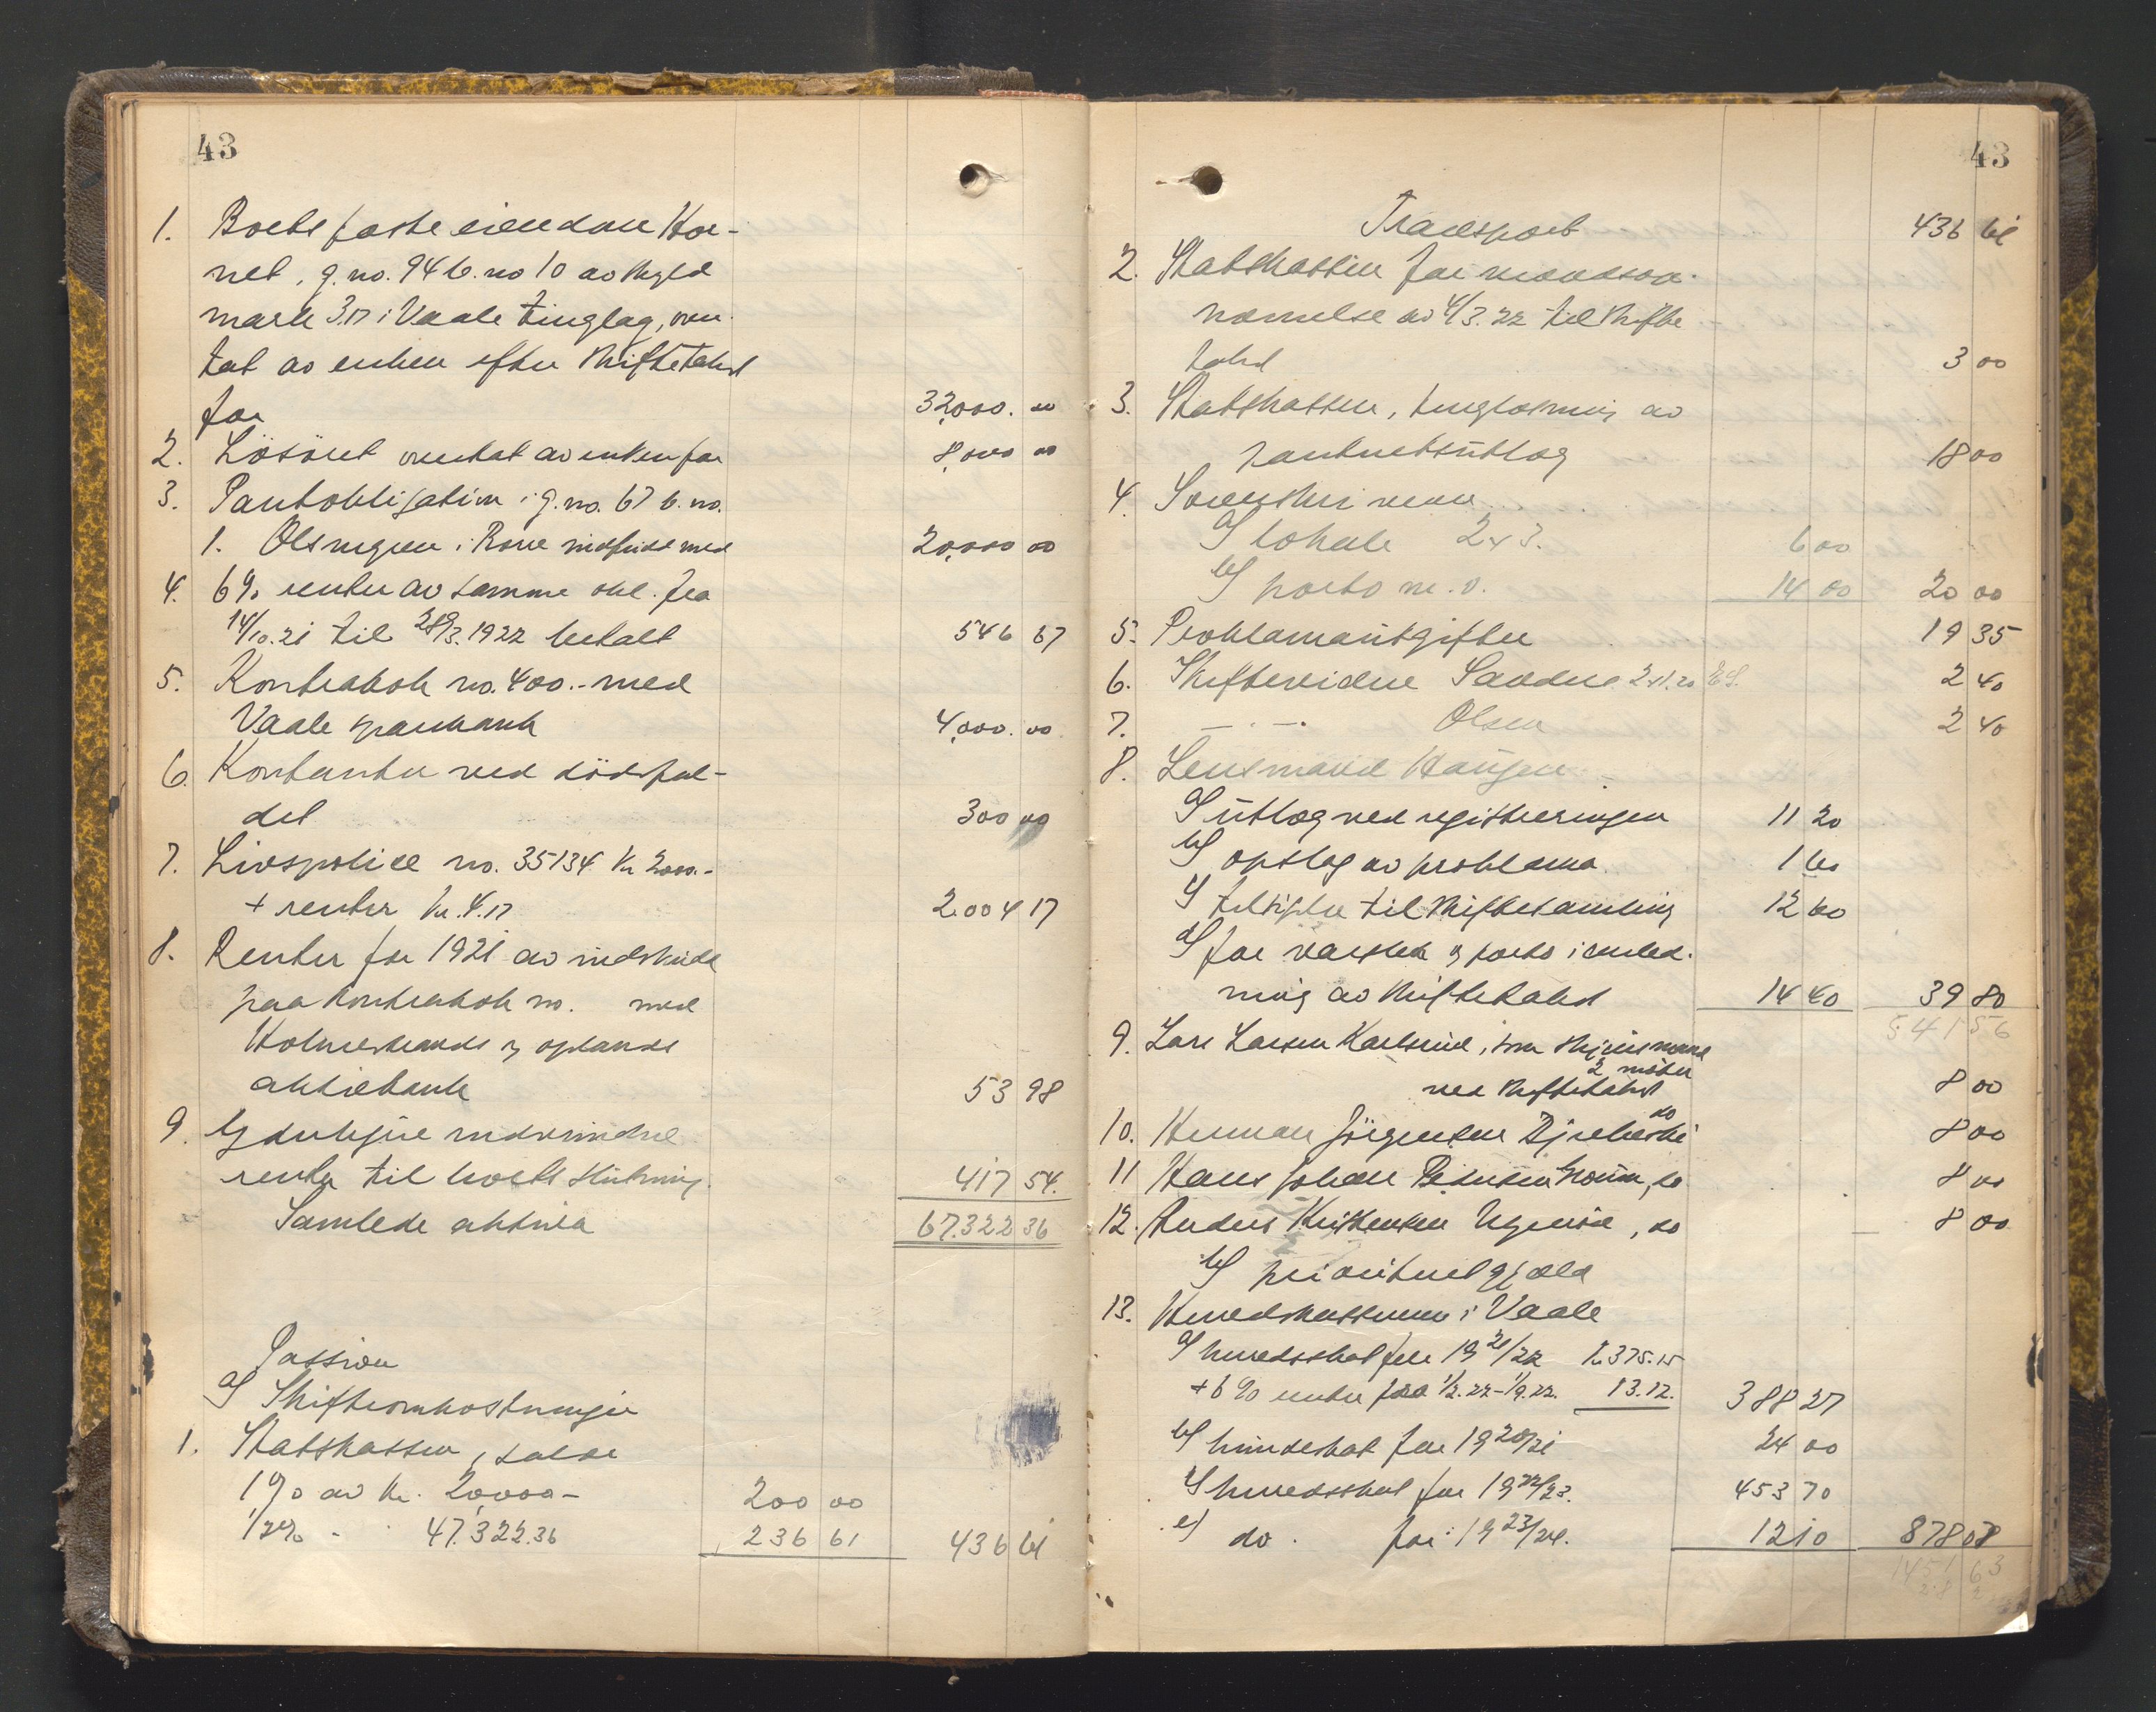 43
1. Boets faste eiendom Hor-
net, g. no. 94 b. no 10 av skyld
mark 3.17 i Vaale tinglag, over-
tat av enken efter skiftetakst
for 32,000. 00
2. Lösöret overtat av enken for 8,000 00
3. Pantobligation i g. no. 67 b. no.
1. i indfridd med 20,000 00
4. 6% renter av samme obl. fra
14/10.21 til 28/3.1922 betalt 546 67
5. Kontrabok no. 400.- med
Vaale sparebank 4,000. 00
6. Kontanter ved dödsfal-
det 300 00
7. Livspolice no. 35134 kr 2000.-
+ renter kr. 4.17 2.004 17
8. Renter for 1921 av indskudd
paa kontrabok no. med
Holmestrands og oplands
aktiebank 53 98
9. Yderligere indvundne
renter til boets slutning. 417 54.
Samlede aktiva 67.322 36
Passiva
a) Skifteomkostninger
1. Statskassen, salær
1% av kr. 20,000- 200 00
1/2% - 47.322.36 236 61 436 61
43
Transport 436 61
2. Statskassen for
nævnelse av 4/3.22 til skifte
takst 3 00
3. Statskassen, tinglæsning av
panteretsutlæg 18 00
4. Sorenskriveren
a) lokale 2 x 3. 6 00
b) porto m. v. 14 00 20 00
5. Proklamautgifter 19 35
6. Skiftevidne Sander 2 x 1.20 2 40
7. - . - . Olsen 2 40
8. Lensmand Haugen
a) utlæg ved registreringen 11 20
b) opslag av proklama 1 60
c) tilsigelse til skiftesamling 12 60
d) for varsler og porto i anled-
ning av skiftetakst 14 40 39 80
541 56
9. Lars Larsen, som skjönsmand
2 möter
ved skiftetakst 8 00
10. Herman Jörgensen, do 8 00
11 Hans Johan, do 8 00
12. Anders Kristensen, do 8 00
b) prioritert gjæld
13. Herredskassereren i Vaale
a) herredsskat for 1921/22 Kr 375.15
+ 6% renter fra 1/2.22-1/9.22. 13.12. 388 27
b) hundeskat for 1920/21 24 00
c) herredsskat for 1922/23. 453 70
d) do. for 1923/24. 12 10 878 07
1451 63